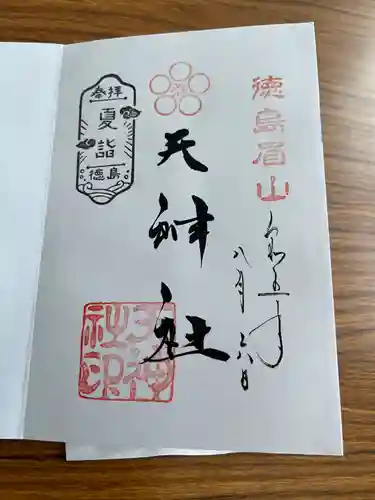 徳島眉山
令和五年
八月二六日
天神社
奉拝
夏詣
徳島
天神
社印